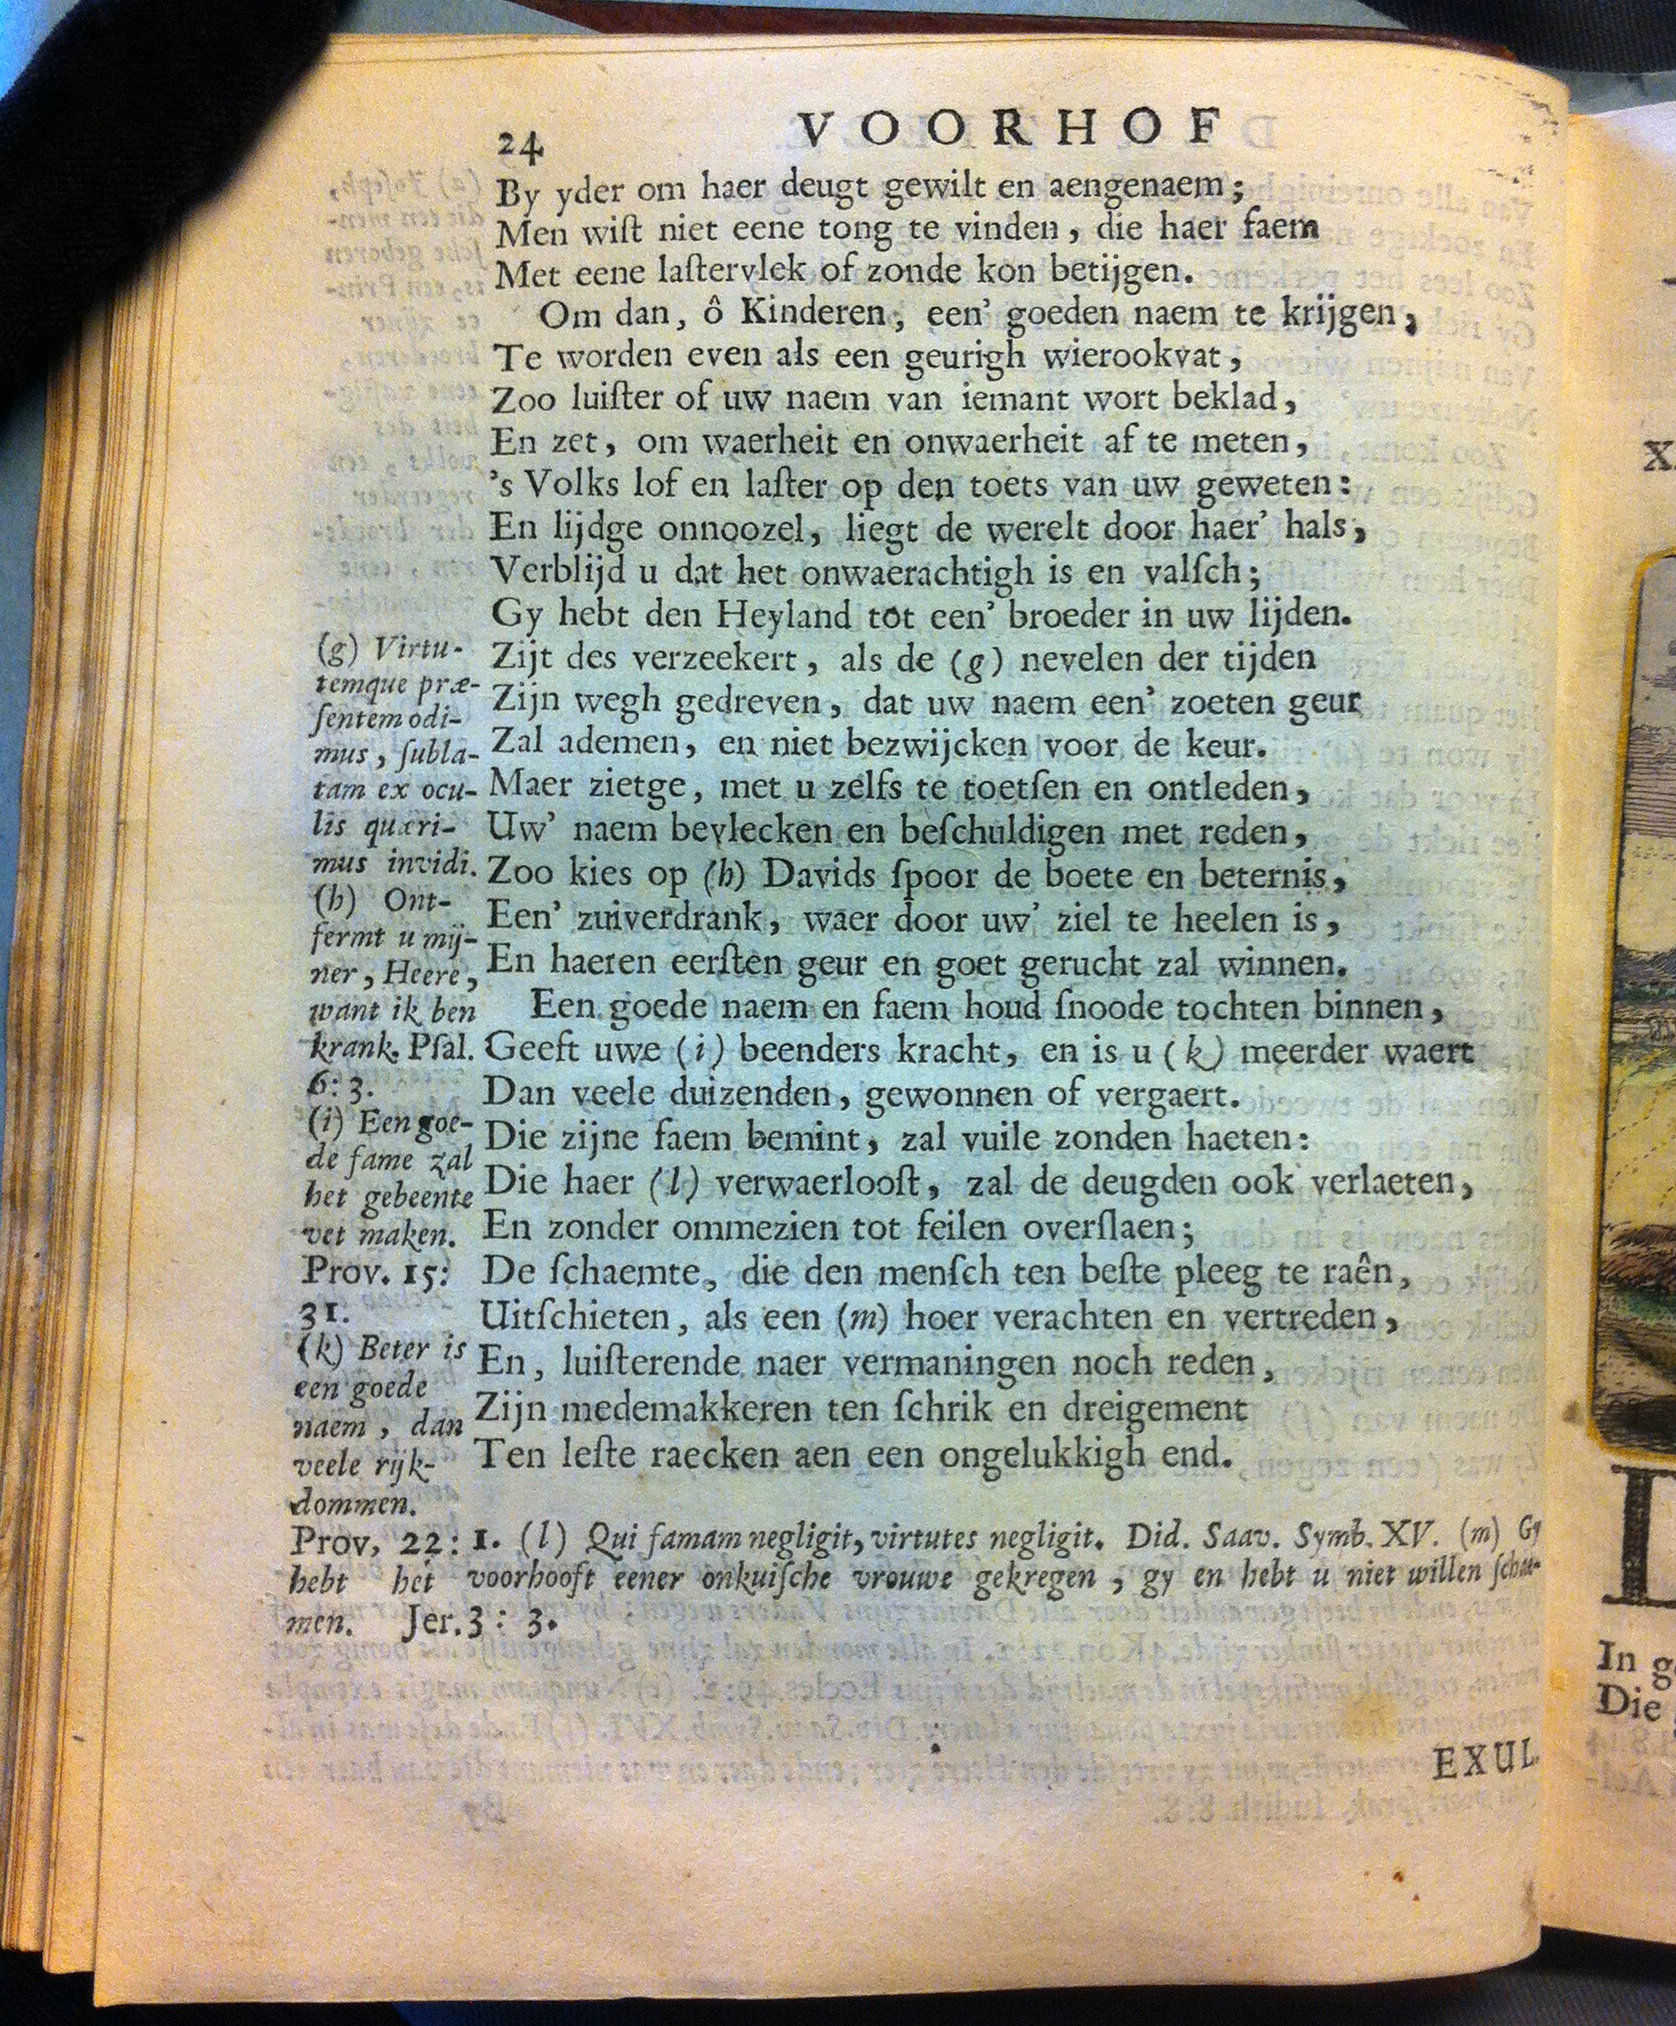 24 VOORHOF
By yder om haer deugt gewilt en aengenaem;
Men wiſt niet eene tong te vinden, die haer faem
Met eene laſtervlek of zonde kon betijgen.
Om dan, ô Kinderen, een' goeden naem te krijgen,
Te worden even als een geurigh wierookvat,
Zoo luiſter of uw naem van iemant wort beklad,
En zet, om waerheit en onwaerheit af te meten,
's Volks lof en laſter op den toets van uw geweten:
En lijdge onnoozel, liegt de werelt door haer' hals,
Verblijd u dat het onwaerachtigh is en valſch;
Gy hebt den Heyland tot een' broeder in uw lijden.
Zijt des verzeekert, als de (g) nevelen der tijden
Zijn wegh gedreven, dat uw naem een' zoeten geur
Zal ademen, en niet bezwijcken voor de keur.
Maer zietge, met u zelfs te toetſen en ontleden,
Uw' naem bevlecken en beſchuldigen met reden,
Zoo kies op (h) Davids ſpoor de boete en beternis,
Een' zuiverdrank, waer door uw' ziel te heelen is,
En haeren eerſten geur en goet gerucht zal winnen.
Een goede naem en faem houd ſnoode tochten binnen,
Geeft uwe (i) beenders kracht, en is u (k) meerder waert
Dan veele duizenden, gewonnen of vergaert.
Die zijne faem bemint, zal vuile zonden haeten:
Die haer (l) verwaerlooſt, zal de deugden ook verlaeten,
En zonder ommezien tot feilen overſlaen;
De ſchaemte, die den menſch ten beſte pleeg te raên,
Uitſchieten, als een (m) hoer verachten en vertreden,
En, luiſterende naer vermaningen noch reden,
Zijn medemakkeren ten ſchrik en dreigement
Ten leſte raecken aen een ongelukkigh end.
(g) Virtu-
temque præ-
ſentem odi-
mus, ſubla-
tam ex ocu-
lis quæri-
mus invidi.
(h) Ont-
fermt u mij-
ner, Heere,
want ik ben
krank. Pſal.
6: 3.
(i) Een goe-
de fame zal
het gebeente
vet maken.
Prov. 15:
31.
(k) Beter is
een goede
naem, dan
veele rijk-
dommen.
Prov. 22: 1. (l) Qui famam negligit, virtutes negligit. Did. Saav. Symb. XV. (m) Gy
hebt het voorhooft eener onkuiſche vrouwe gekregen, gy en hebt u niet willen ſchae-
men. Jer. 3: 3.
EXUL.
X.
In
Die